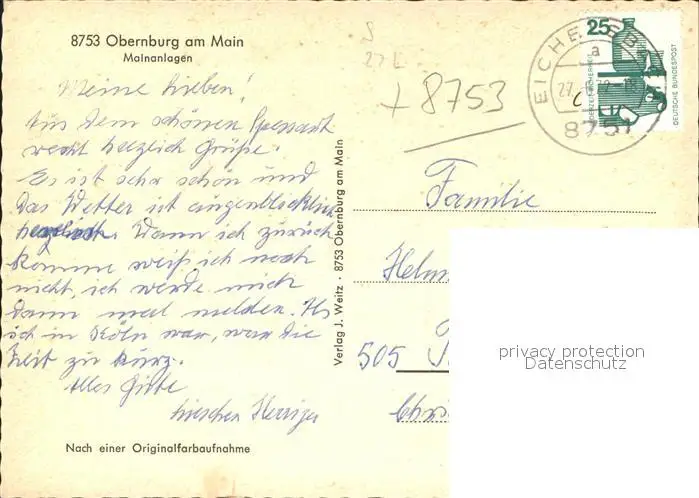 8753 Obernburg am Main
Mainanlagen
Meine Lieben!
Aus dem schönen Spessart
recht herzlich Grüße.
Es ist sehr schön und
das Wetter ist augenblicklich
herrlich. Wann ich zurück
komme weiß ich noch
nicht, ich werde mich
dann mal melden. Als
ich in Köln war, war die
Zeit zu kurz.
Alles Gute
Nach einer Originalfarbaufnahme
Verlag J. Weitz · 8753 Obernburg am Main
+ 8753
25
DEUTSCHE BUNDESPOST
a
8751
Familie
505
privacy protection
Datenschutz